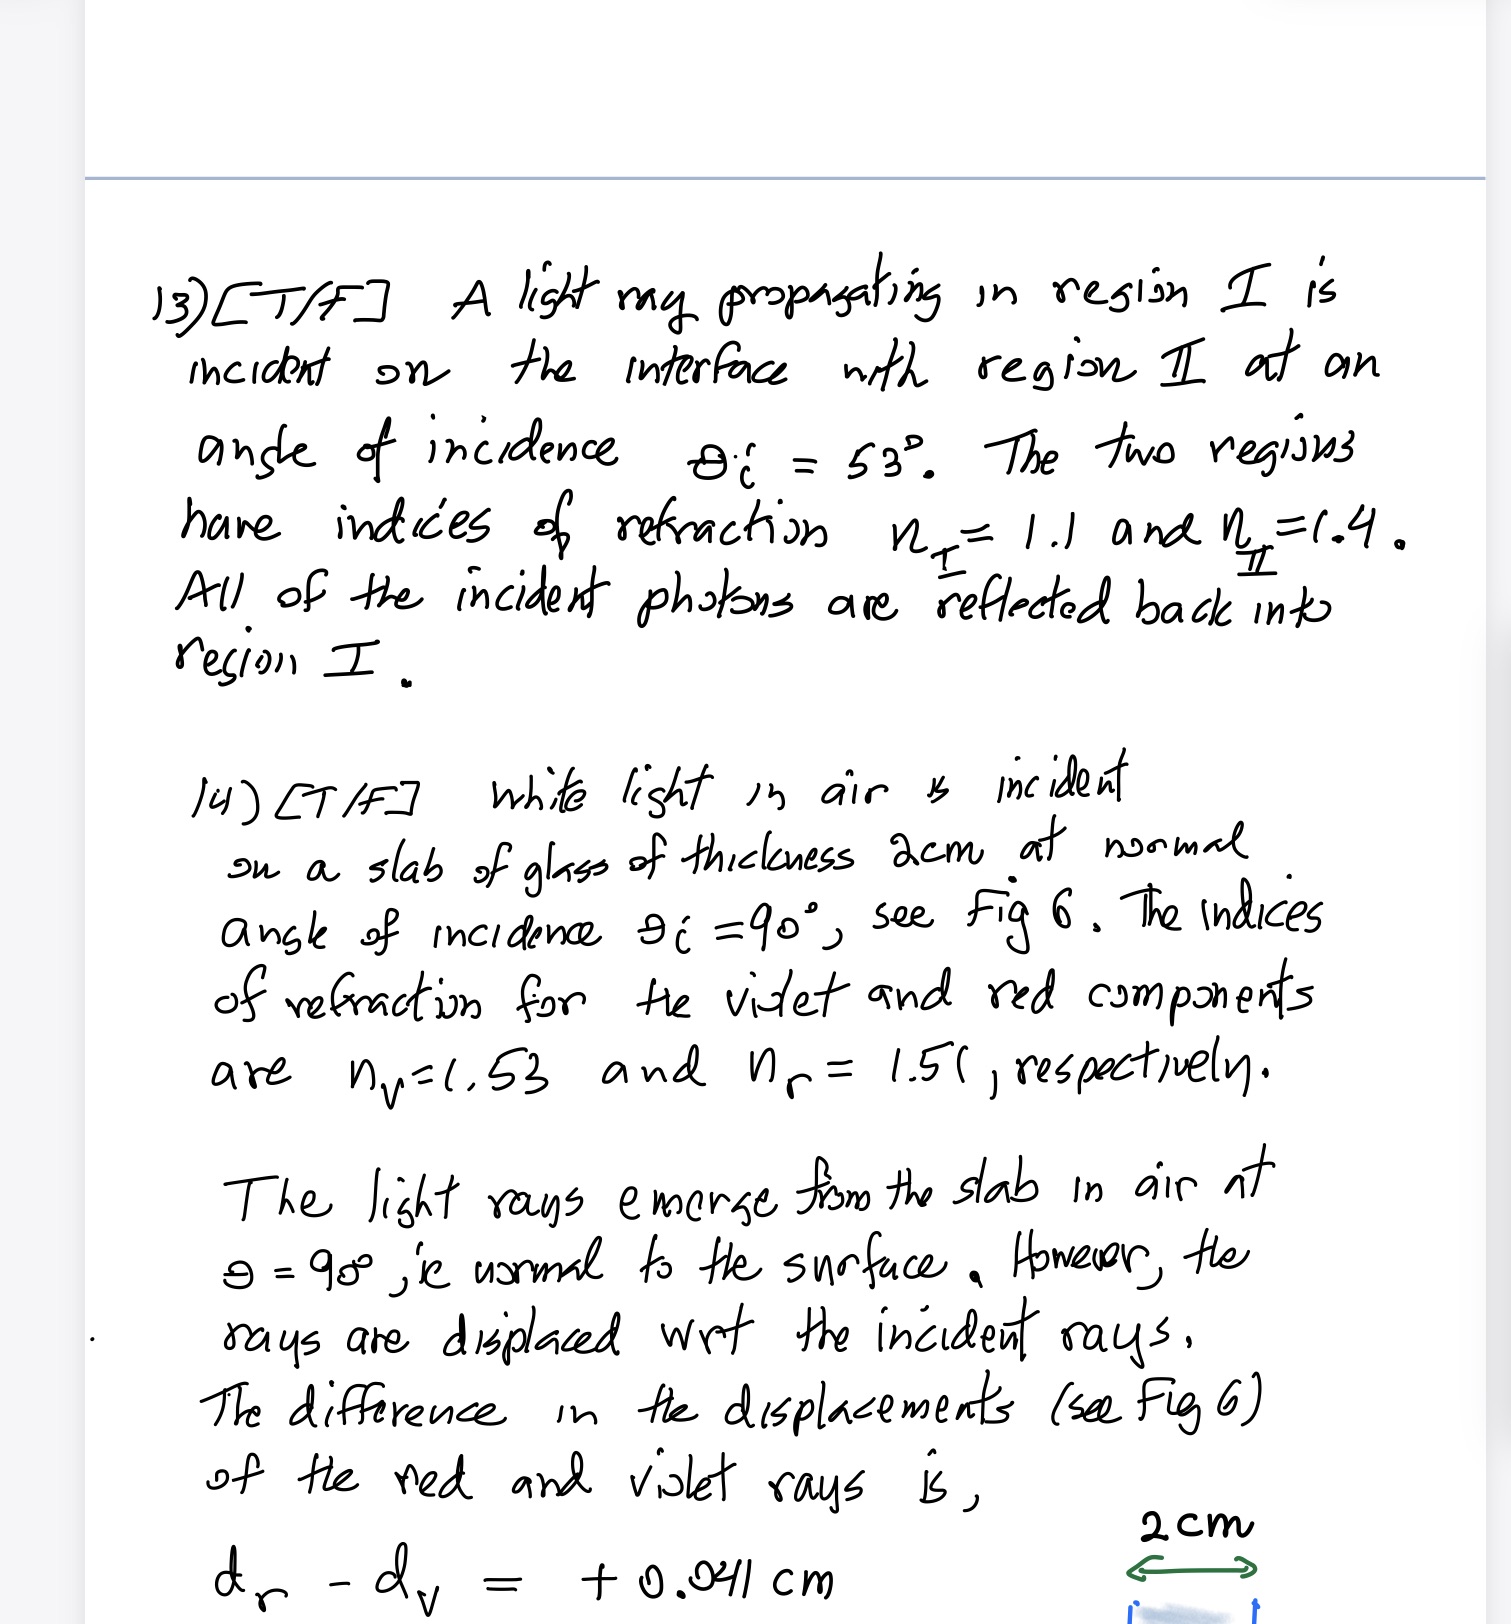 13) [T/F] A light ray propagating in region I is
incident on the interface with region II at an
angle of incidence θi = 53°. The two regions
have indices of refraction n_I = 1.1 and n_II = 1.4.
All of the incident photons are reflected back into
region I.
14) [T/F] White light in air is incident
on a slab of glass of thickness 2cm at normal
angle of incidence θi = 90°, see Fig 6. The indices
of refraction for the violet and red components
are n_v = 1.53 and n_r = 1.51, respectively.
The light rays emerge from the slab in air at
θ = 90°, ie normal to the surface. However, the
rays are displaced wrt the incident rays.
The difference in the displacements (see Fig 6)
of the red and violet rays is,
2cm
d_r - d_v = + 0.041 cm